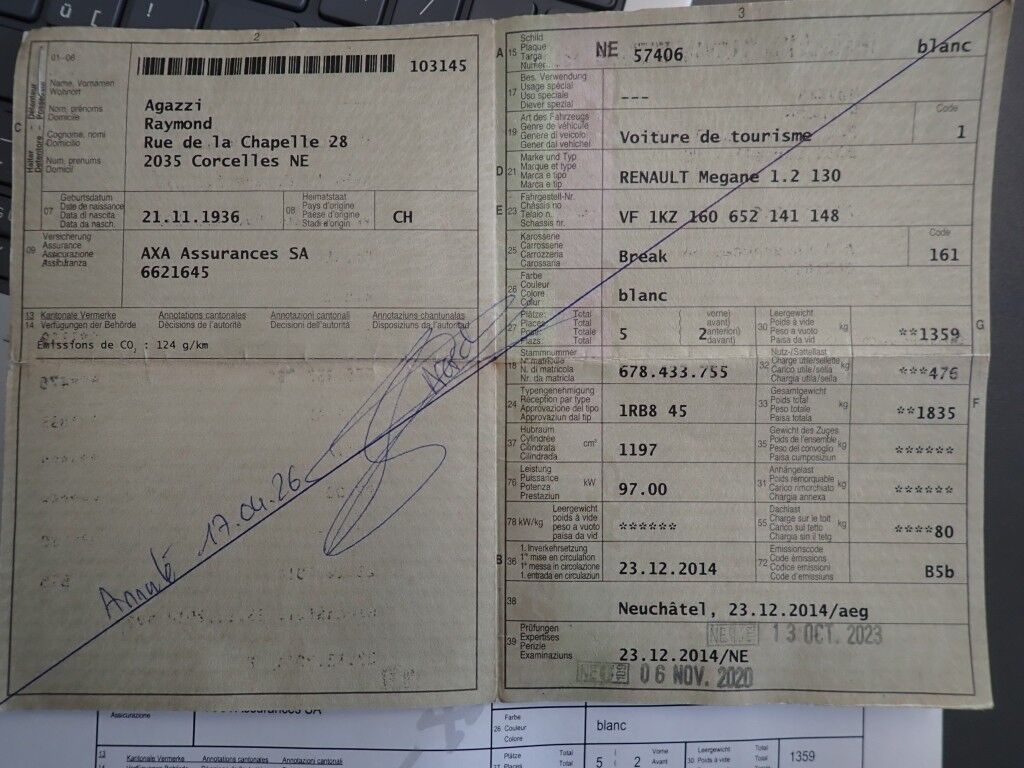 2
01-06
103145
C
Name, Vornamen
Wohnort
Nom, prénoms
Domicile
Cognome, nomi
Domicilio
Num, prenums
Domicil
Agazzi
Raymond
Rue de la Chapelle 28
2035 Corcelles NE
07
Geburtsdatum
Date de naissance
Data di nascita
Data da nasch.
21.11.1936
08
Heimatstaat
Pays d'origine
Paese d'origine
Stadi d'origin
CH
09
Versicherung
Assurance
Assicurazione
Assicuranza
AXA Assurances SA
6621645
13 Kantonale Vermerke Annotations cantonales Annotazioni cantonali Annotaziuns chantunalas
14 Verfügungen der Behörde Décisions de l'autorité Decisioni dell'autorità Disposiziuns da l'autoritad
Émissions de CO₂ : 124 g/km
Annulé 17.04.26
3
A
15
Schild
Plaque
Targa
Numer
NE 57406
blanc
17
Bes. Verwendung
Usage spécial
Uso speciale
Diever spezial
---
19
Art des Fahrzeugs
Genre de véhicule
Genere di veicolo
Gener dal vehichel
Voiture de tourisme
Code
1
D
21
Marke und Typ
Marque et type
Marca e tipo
Marca e tip
RENAULT Megane 1.2 130
E
23
Fahrgestell-Nr.
Châssis no
Telaio n.
Schassis nr.
VF 1KZ 160 652 141 148
25
Karosserie
Carrosserie
Carrozzeria
Carossaria
Break
Code
161
26
Farbe
Couleur
Colore
Colur
blanc
27
Plätze: Total
Places: Total
Posti: Totale
Plazs: Total
5
( vorne)
avant)
anteriori)
davant)
2
30
Leergewicht
Poids à vide
Peso a vuoto
Paisa da vid
kg
**1359
G
18
Stammnummer
N° matricule
N. di matricola
Nr. da matricla
678.433.755
32
Nutz-/Sattellast
Charge utile/sellette
Carico utile/sella
Chargia utila/sella
kg
***476
24
Typengenehmigung
Réception par type
Approvazione del tipo
Approvaziun dal tip
1RB8 45
33
Gesamtgewicht
Poids total
Peso totale
Paisa totala
kg
**1835
F
37
Hubraum
Cylindrée
Cilindrata
Cilindrada
cm³
1197
35
Gewicht des Zuges
Poids de l'ensemble
Peso del convoglio
Paisa cumposiziun
kg
******
76
Leistung
Puissance
Potenza
Prestaziun
kW
97.00
31
Anhängelast
Poids remorquable
Carico rimorchiato
Chargia annexa
kg
******
78 kW/kg
Leergewicht
poids à vide
peso a vuoto
paisa da vid
******
55
Dachlast
Charge sur le toit
Carico sul tetto
Chargia sin il tetg
kg
****80
B
36
1. Inverkehrsetzung
1re mise en circulation
1a messa in circolazione
1. entrada en circulaziun
23.12.2014
72
Emissionscode
Code émissions
Codice emissioni
Code d'emissiuns
B5b
38
Neuchâtel, 23.12.2014/aeg
39
Prüfungen
Expertises
Perizie
Examinaziuns
13 OCT. 2023
23.12.2014/NE
06 NOV. 2020
Assicurazione
26
Farbe
Couleur
Colore
blanc
13
Kantonale Vermerke Annotations cantonales Annotazioni cantonali
Plätze Total
5 ( 2
Vorne
Avant
30
Leergewicht Total
Poids à vide Total
1359